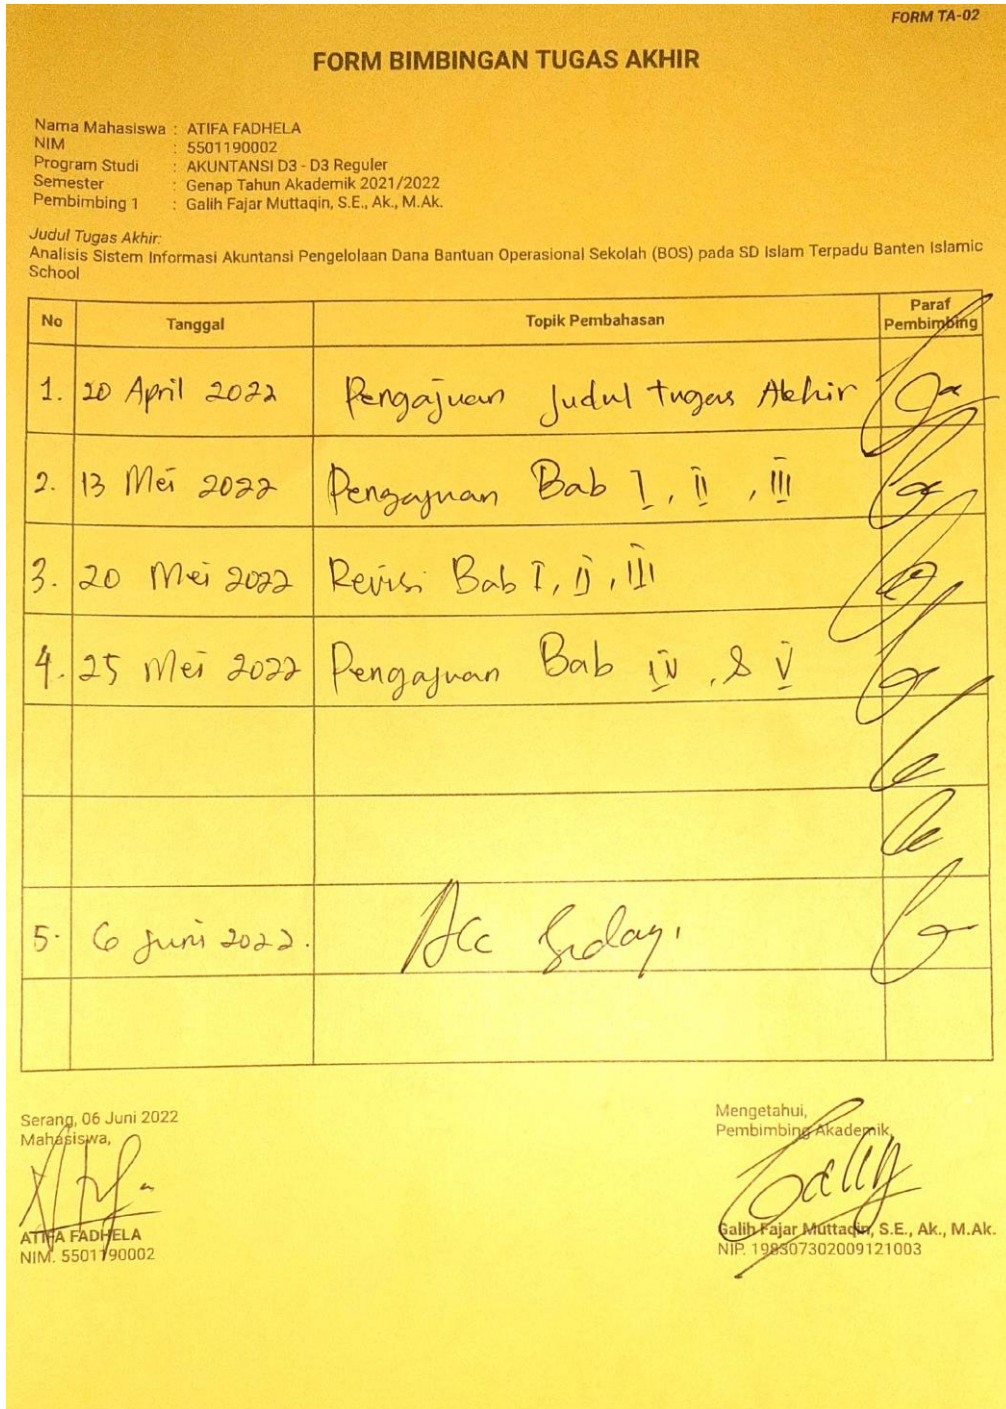 FORM TA-02
FORM BIMBINGAN TUGAS AKHIR
Nama Mahasiswa : ATIFA FADHELA
NIM : 5501190002
Program Studi : AKUNTANSI D3 - D3 Reguler
Semester : Genap Tahun Akademik 2021/2022
Pembimbing 1 : Galih Fajar Muttaqin, S.E., Ak., M.Ak.
Judul Tugas Akhir:
Analisis Sistem Informasi Akuntansi Pengelolaan Dana Bantuan Operasional Sekolah (BOS) pada SD Islam Terpadu Banten Islamic
School
No Tanggal Topik Pembahasan Paraf Pembimbing
1. 20 April 2022 Pengajuan Judul tugas Akhir
2. 13 Mei 2022 Pengajuan Bab I, II, III
3. 20 Mei 2022 Revisi Bab I, II, III
4. 25 Mei 2022 Pengajuan Bab IV, & V
5. 6 Juni 2022. Acc
Serang, 06 Juni 2022
Mahasiswa,
ATIFA FADHELA
NIM. 5501190002
Mengetahui,
Pembimbing Akademik,
Galih Fajar Muttaqin, S.E., Ak., M.Ak.
NIP. 198307302009121003